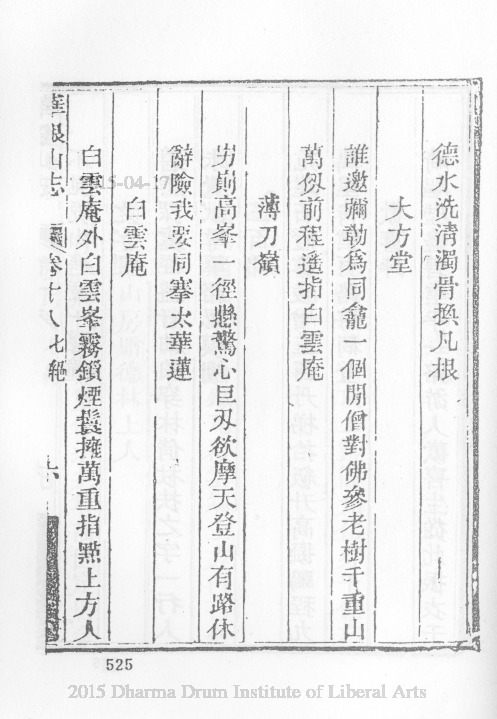 德水洗清濁骨換凡根
大方堂
誰邀彌勒爲同龕一個閒僧對佛參老樹千重山
萬仞前程遥指白雲庵
薄刀嶺
屴崱高峯一徑懸驚心巨刃欲摩天登山有路休
辭險我要同搴太華蓮
白雲庵
白雲庵外白雲峯霧鎖煙鬟擁萬重指點上方人
華銀山志
卷十八 七絕
525
2015-04-17
2015 Dharma Drum Institute of Liberal Arts